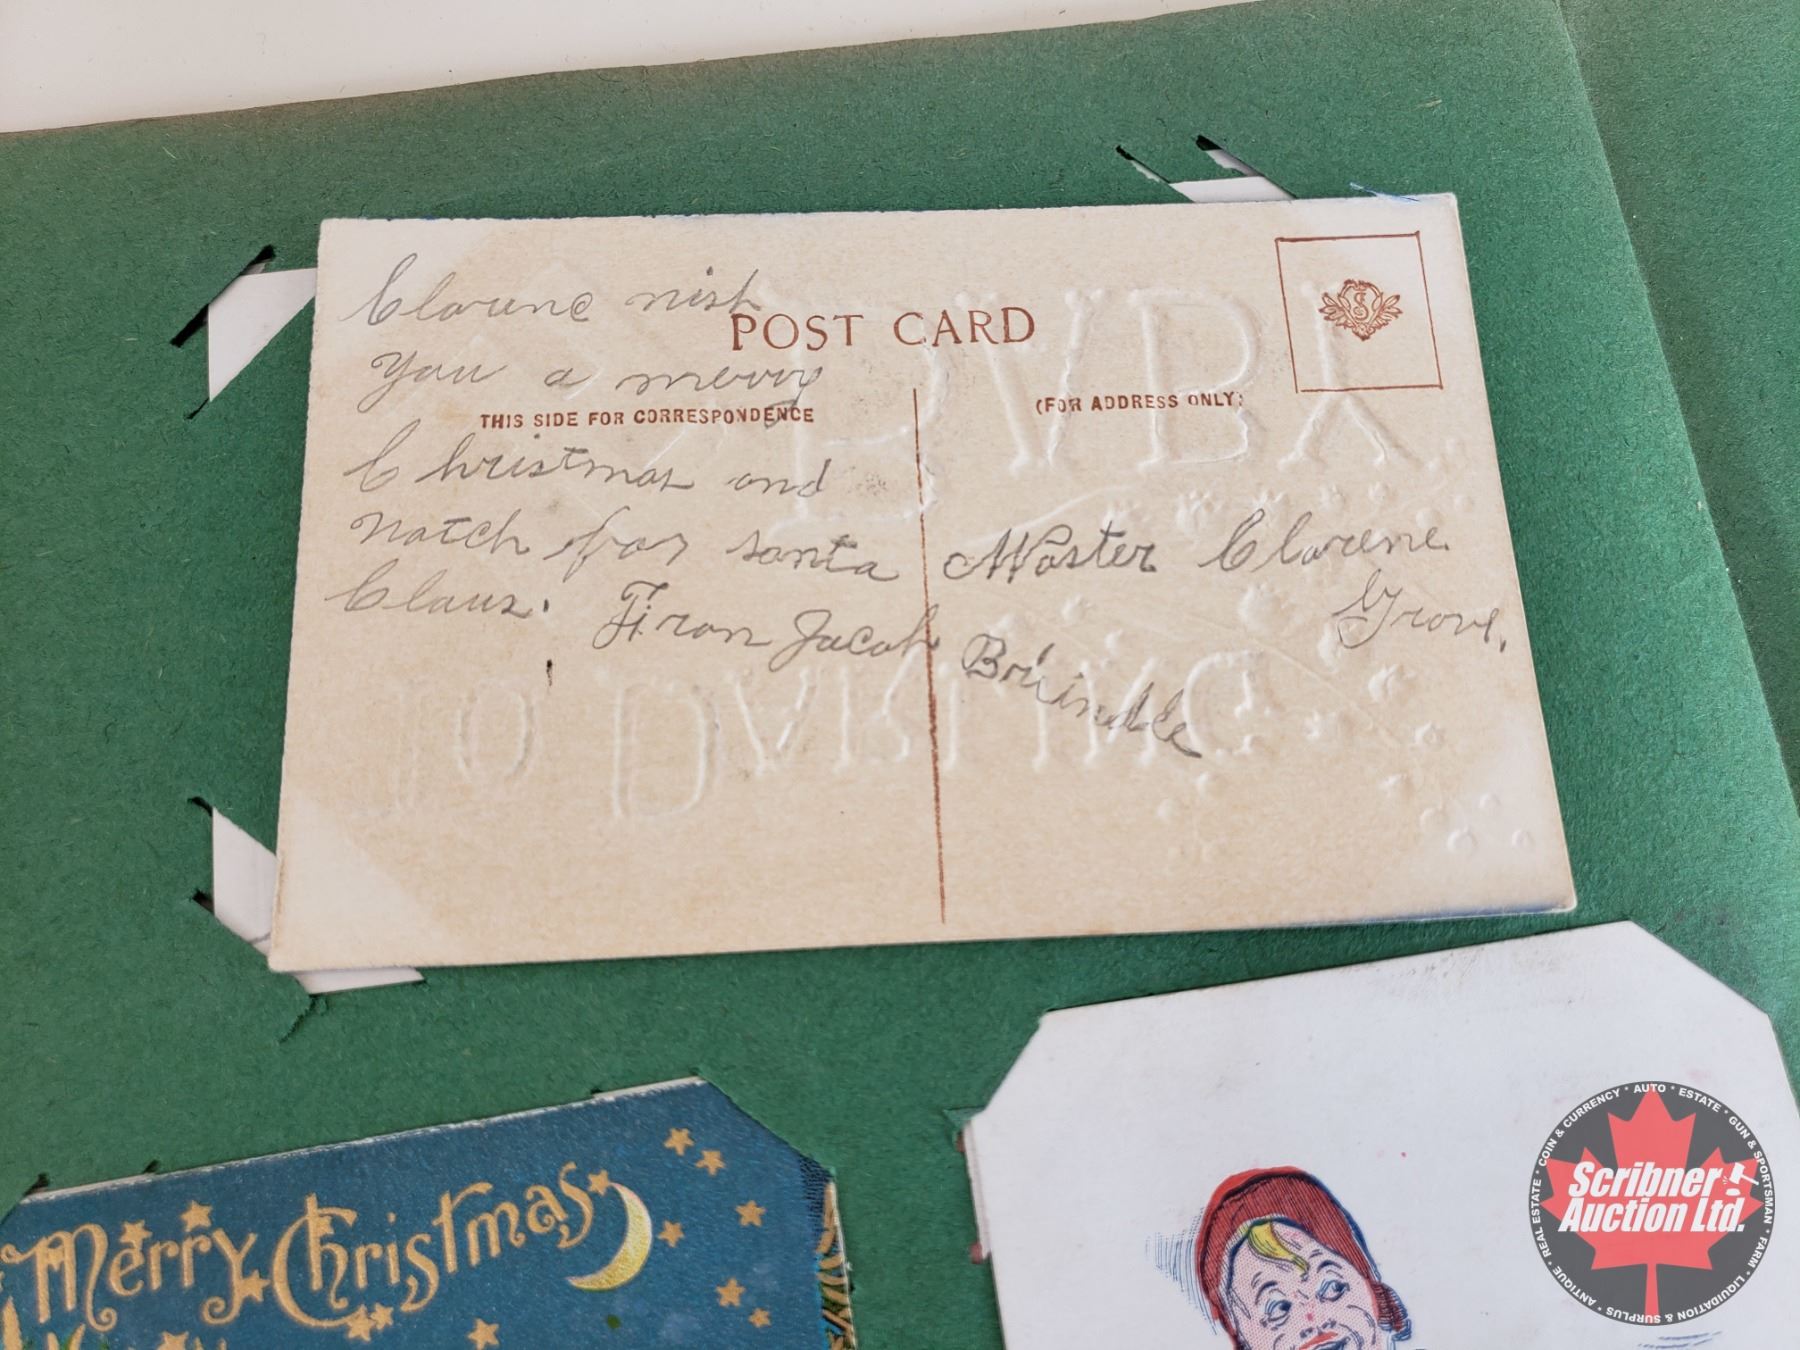 Clarence wish
POST CARD
you a merry
THIS SIDE FOR CORRESPONDENCE
(FOR ADDRESS ONLY)
Christmas and
watch for santa
Claus.
From Jacob
Master Clarence
Grove.
TO DARLING
Merry Christmas
Scribner
Auction Ltd.
COIN & CURRENCY * AUTO * ESTATE * GUN & SPORTSMAN * FARM * LIQUIDATION & SURPLUS * ANTIQUE * REAL ESTATE *